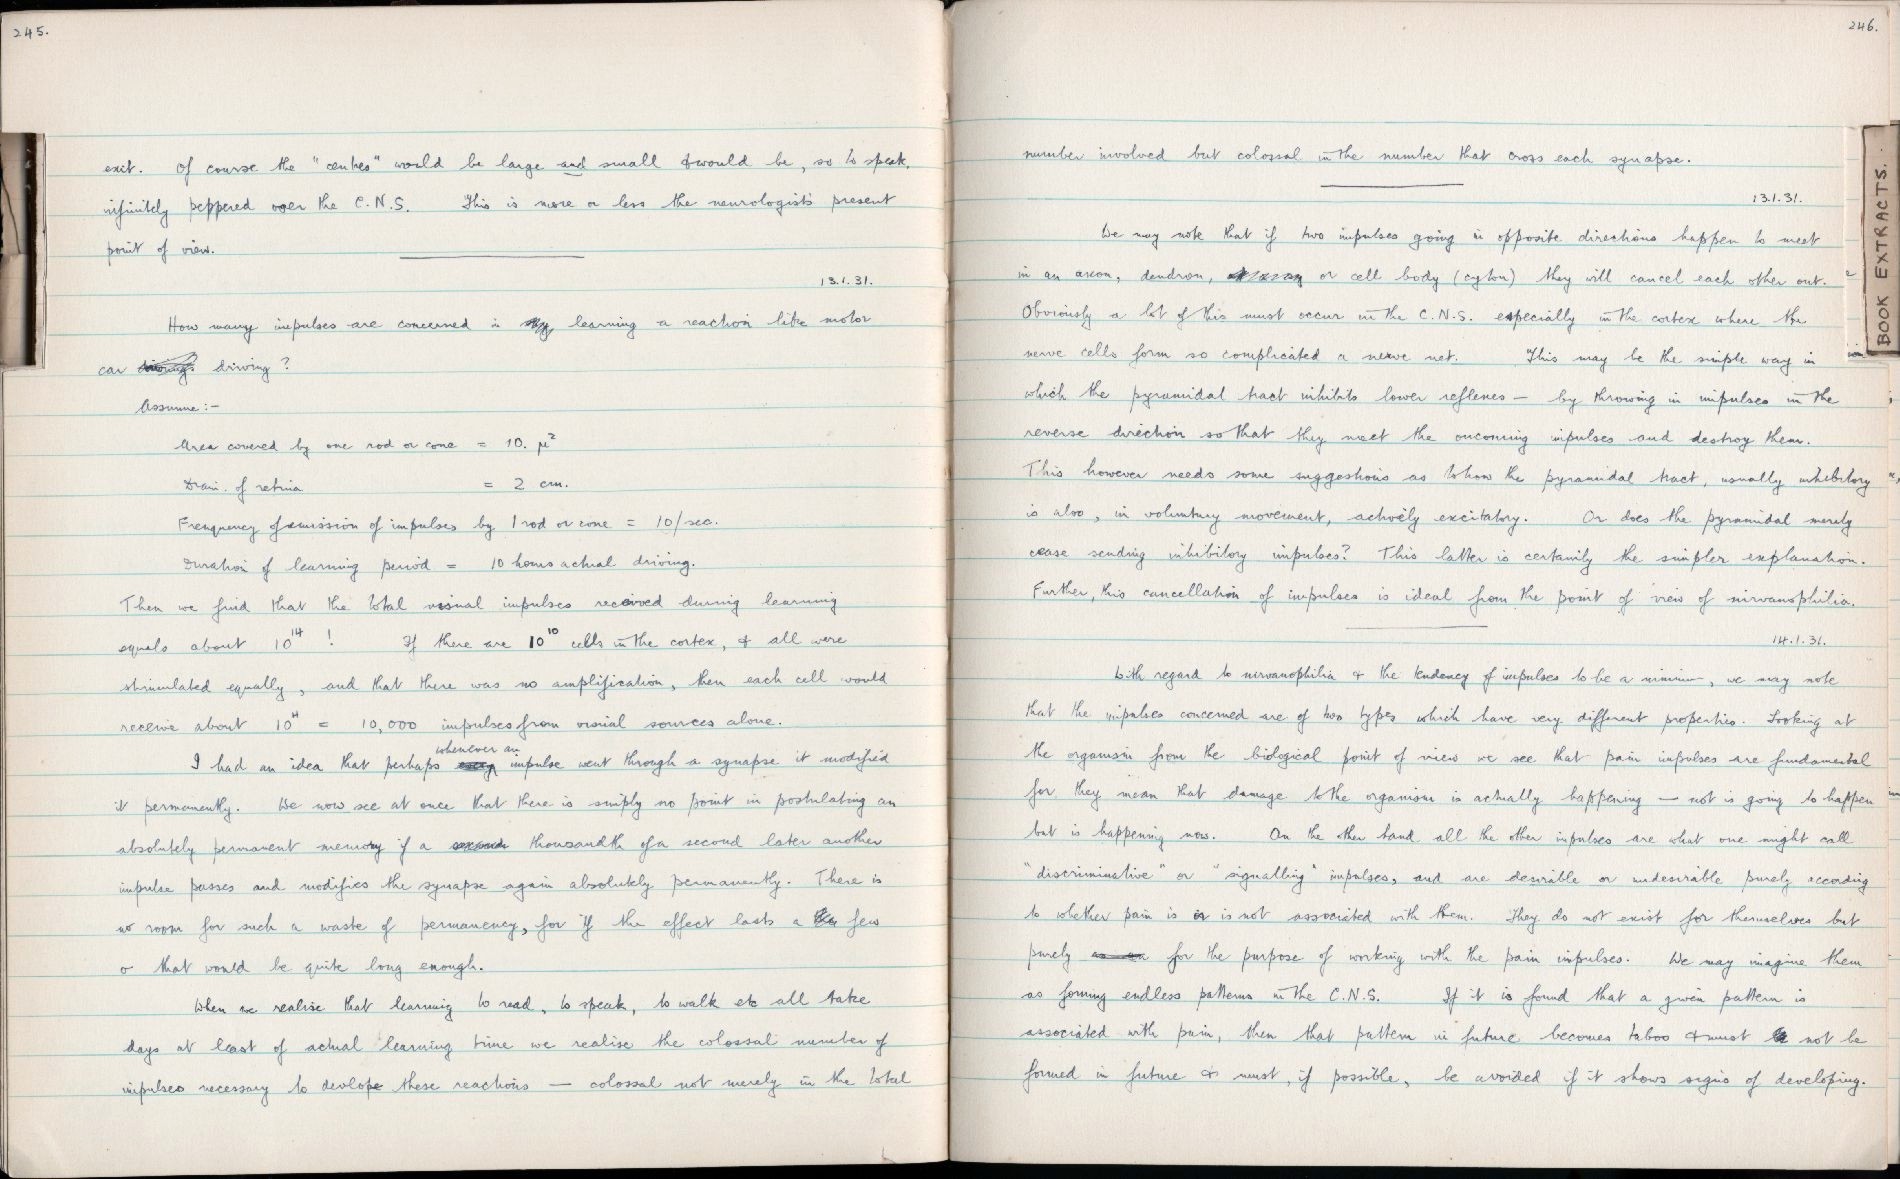 245.
exit. Of course the "centres" would be large and small & would be, so to speak,
infinitely peppered over the C.N.S. This is more or less the neurologists present
point of view.
13.1.31.
How many impulses are concerned in learning a reaction like motor
car driving?
Assume:-
Area covered by one rod or cone = 10. μ²
Diam. of retina = 2 cm.
Frenquency of emission of impulses by 1 rod or cone = 10/sec.
Duration of learning period = 10 hours actual driving.
Then we find that the total visual impulses received during learning
equals about 10¹⁴ ! If there are 10¹⁰ cells in the cortex, & all were
stimulated equally, and that there was no amplification, then each cell would
receive about 10⁴ = 10,000 impulses from visual sources alone.
I had an idea that perhaps whenever an impulse went through a synapse it modified
it permanently. We now see at once that there is simply no point in postulating an
absolutely permanent memory if a thousandth of a second later another
impulse passes and modifies the synapse again absolutely permanently. There is
no room for such a waste of permanency, for if the effect lasts a few
σ that would be quite long enough.
When we realise that learning to read, to speak, to walk etc all take
days at least of actual learning time we realise the colossal number of
impulses necessary to devlope these reactions — colossal not merely in the total
246.
number involved but colossal in the number that cross each synapse.
13.1.31.
We may note that if two impulses going in opposite directions happen to meet
in an axon, dendron, or cell body (cyton) they will cancel each other out.
Obviously a lot of this must occur in the C.N.S. especially in the cortex where the
nerve cells form so complicated a nerve net. This may be the simple way in
which the pyramidal tract inhibits lower reflexes — by throwing in impulses in the
reverse direction so that they meet the oncoming impulses and destroy them.
This however needs some suggestions as to how the pyramidal tract, usually inhibitory
is also, in voluntary movement, actively excitatory. Or does the pyramidal merely
cease sending inhibitory impulses? This latter is certainly the simpler explanation.
Further, this cancellation of impulses is ideal from the point of view of nirvanophilia.
14.1.31.
With regard to nirvanophilia & the tendency of impulses to be a minimum, we may note
that the impulses concerned are of two types which have very different properties. Looking at
the organism from the biological point of view we see that pain impulses are fundamental
for they mean that damage to the organism is actually happening — not is going to happen
but is happening now. On the other hand all the other impulses are what one might call
"discriminative" or "signalling" impulses, and are desirable or undesirable purely according
to whether pain is or is not associated with them. They do not exist for themselves but
purely for the purpose of working with the pain impulses. We may imagine them
as forming endless patterns in the C.N.S. If it is found that a given pattern is
associated with pain, then that pattern in future becomes taboo & must not be
formed in future & must, if possible, be avoided if it shows signs of developing.
BOOK EXTRACTS.